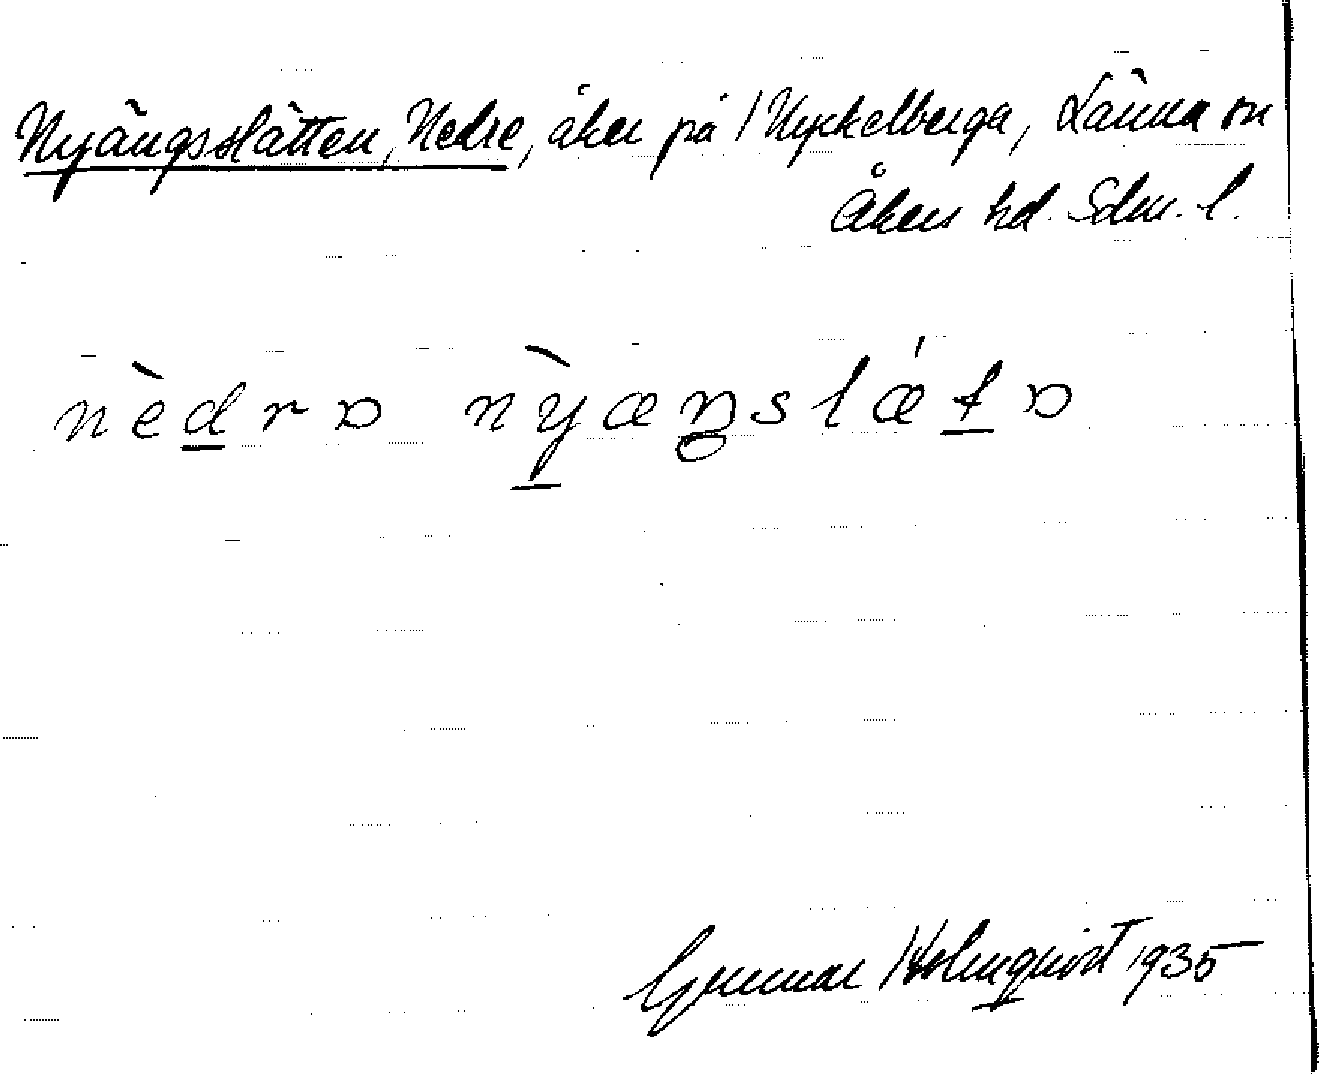 Nyängsslätten, Nedre, åker på Nyckelberga, Länna sn
Åkers hd. Sdm. l.
nèdra nỳæŋslǽta
Gunnar Holmqvist 1935